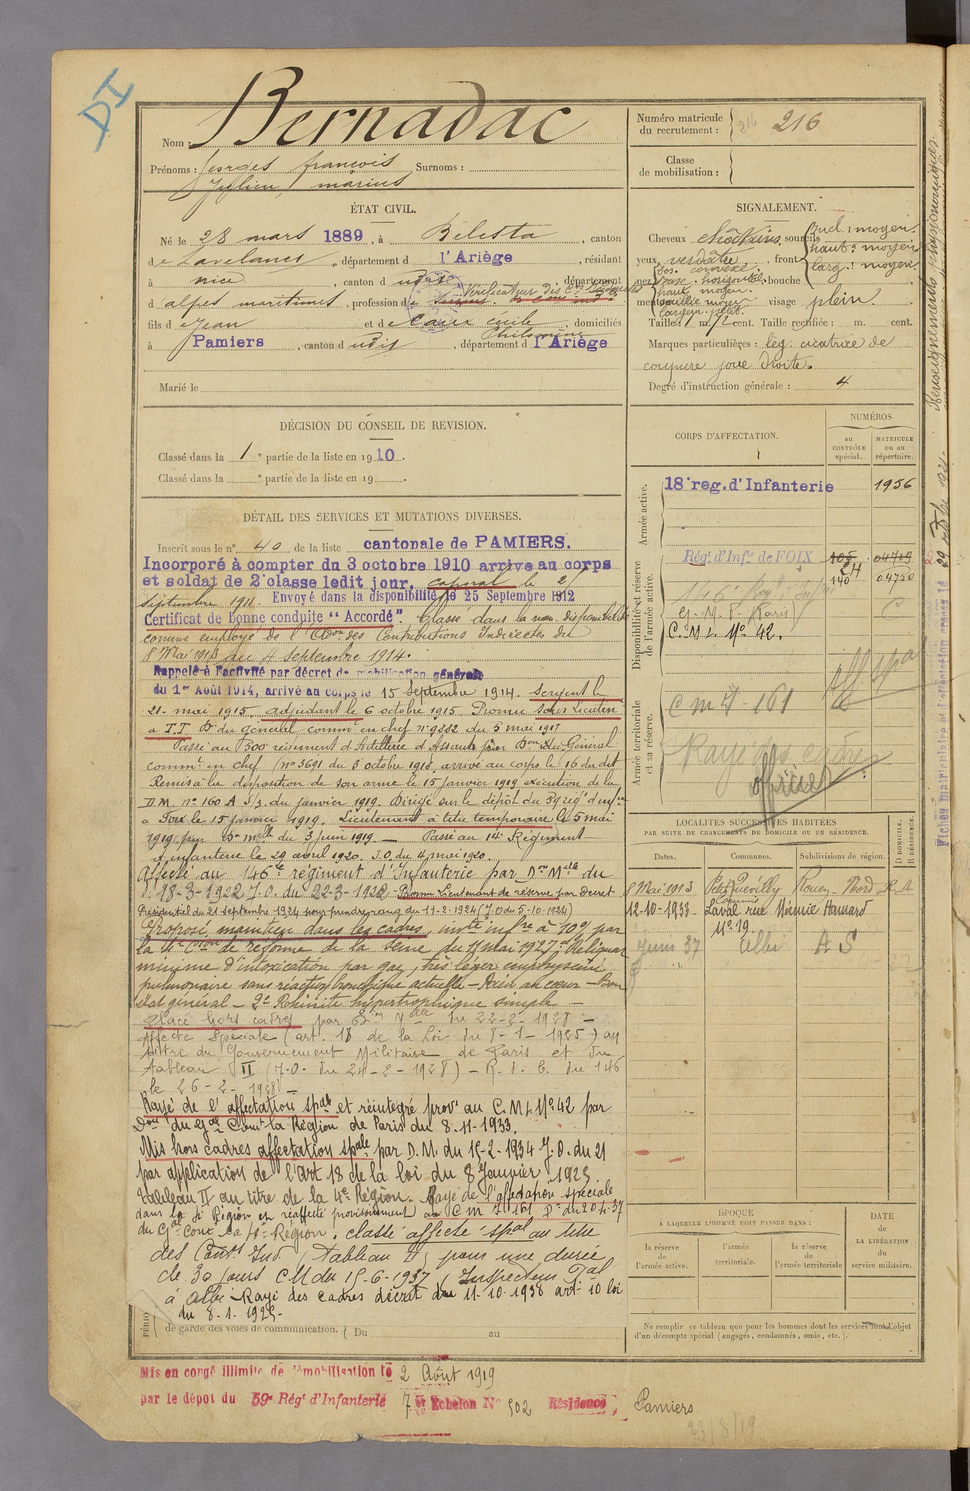 DI
Nom : Bernadac
Prénoms : Georges françois Surnoms :
Julien, marius
ÉTAT CIVIL.
Né le 28 mars 1889, à Bélesta, canton
de Lavelanet, département d l'Ariège, résidant
à nice, canton d udit, département
d alpes maritimes, profession de Vérificateur des
fils de Jean et de Caux cécile Philomène, domiciliés
à Pamiers, canton d udit, département d l'Ariège
Marié le
DÉCISION DU CONSEIL DE REVISION.
Classé dans la 1e partie de la liste en 1910.
Classé dans la e partie de la liste en 19 .
DÉTAIL DES SERVICES ET MUTATIONS DIVERSES.
Inscrit sous le n° 40 de la liste cantonale de PAMIERS.
Incorporé à compter du 3 octobre 1910 arrive au corps
et soldat de 2e classe ledit jour, caporal le 25
septembre 1911. Envoyé dans la disponibilité le 25 Septembre 1912
Certificat de bonne conduite "Accordé". Classé dans la non disponibilité
comme employé de l'Aon des Contributions Indirectes du
8 Mai 1913 au 4 Septembre 1914.
Rappelé à l'activité par décret de mobilisation générale
du 1er Août 1914, arrivé au corps le 15 septembre 1914. Sergent le
21 mai 1915, adjudant le 6 octobre 1915. Promu sous Lieutent
à T.T. Dn du général commt en chef n° 9882 du 5 mai 1917
Passé au 500e régiment d'Artillerie d'Assaut par Don du Général
commt en chef (n° 3691 du 3 octobre 1918, arrivé au corps le 16 dudit
Remis à la disposition de son arme le 15 janvier 1919 exécution de la
D.M. n° 160 A S/3 du janvier 1919. Dirigé sur le dépôt du 59 rég d'infie
à Foix le 15 janvier 1919. Lieutenant à titre temporaire le 5 mai
1919 par Dn mlle du 3 juin 1919 — Passé au 14e Régiment
d'infanterie le 29 avril 1920. J.O. du 4 mai 1920.
Affecté au 146e régiment d'Infanterie par Don Mlle du
18-3-1922 J.O. du 22-3-1922 - Promu Lieutenant de réserve par décret
Présidentiel du 21 septembre 1924 pour prendre rang du 11-2-1924 (J.O. du 5-10-1924)
Proposé maintien dans les cadres, invté infre à 10% par
la 4e Cion de réforme de la Seine, du 11 mai 1927 1° Reliquat
minime d'intoxication par gaz, très léger emphysème
pulmonaire sans réaction bronchique actuelle - Rien au cœur - Bon
état général - 2° Rhinite hypertrophique simple -
Placé hors cadres par Don Mlle du 22-2-1928 -
Affecté Spéciale (art. 18 de la Loi du 8-1-1925) au
titre du Gouvernement Militaire de Paris et du
tableau II (J.O. du 24-2-1928) - R.d.C. du 146
le 26-2-1928 -
Rayé de l'affectation spale et réintégré provt au C.M.I. N° 42 par
Don du Gal Comt la Région de Paris du 8.11.1933.
Mis hors cadres affectation spale par D.M. du 15-2-1934 J.O. du 21
par application de l'art 18 de la loi du 8 Janvier 1925
tableau II au titre de la 4e Région. Rayé de l'affectation spéciale
dans la 4e Région et réaffecté provisoirement au C M I 161 Dn du 20.4.37
du Gal Comt la 4e Région. classé affecté spal au titre
des Cont Ind Tableau II pour une durée
de 30 jours CM du 15-6-1937 (Inspecteur Pal
à Albi - Rayé des cadres décret du 11.10.1938 art 10 loi
du 8.1.1925-
de garde des voies de communication. ( Du au
Mis en congé illimité de démobilisation le 2 Août 1919
par le dépôt du 59e Régt d'Infanterie 7 er Echelon N° 502 Résidence Pamiers
23/8/19
Numéro matricule du recrutement : 216 216
Classe de mobilisation :
SIGNALEMENT.
Cheveux châtains, sourcils
yeux verdâtre, front incl : moyen. haut : moyen larg : moyen.
nez dos. convexe. base. horizontale haut. moyen. saillie moyen largeur petit. bouche
menton visage plein.
Taille : 1 m. 72 cent. Taille rectifiée : m. cent.
Marques particulières : lég. cicatrice de
coupure joue droite.
Degré d'instruction générale : 4
CORPS D'AFFECTATION.
NUMÉROS
au CONTRÔLE spécial.
MATRICULE ou au répertoire.
Armée active.
18e reg. d'Infanterie 1956
Disponibilité et réserve de l'armée active.
Régt d'Infie de FOIX 105 04719
24
140 04750
146e Reg d'Infie
G. M. P. Paris
C.M.I. N° 42.
aff spal
Armée territoriale et sa réserve.
C m I 161
Rayé des cadres
officier
LOCALITÉS SUCCESSIVES HABITÉES
PAR SUITE DE CHANGEMENTS DE DOMICILE OU DE RÉSIDENCE.
Dates. Communes. Subdivisions de région. D DOMICILE. R RÉSIDENCE.
8 Mai 1913 Petit Quévilly Rouen - Nord R
12-10-1933 Laval rue Hamard
N° 19
Juin 37 Albi A S
ÉPOQUE
À LAQUELLE L'HOMME DOIT PASSER DANS :
la réserve de l'armée active.
l'armée territoriale.
la réserve de l'armée territoriale
DATE de LA LIBÉRATION du service militaire.
Ne remplir ce tableau que pour les hommes dont les services font l'objet
d'un décompte spécial (engagés, condamnés, omis, etc.).
Renseignements physionomiques.
29 octobre 1921